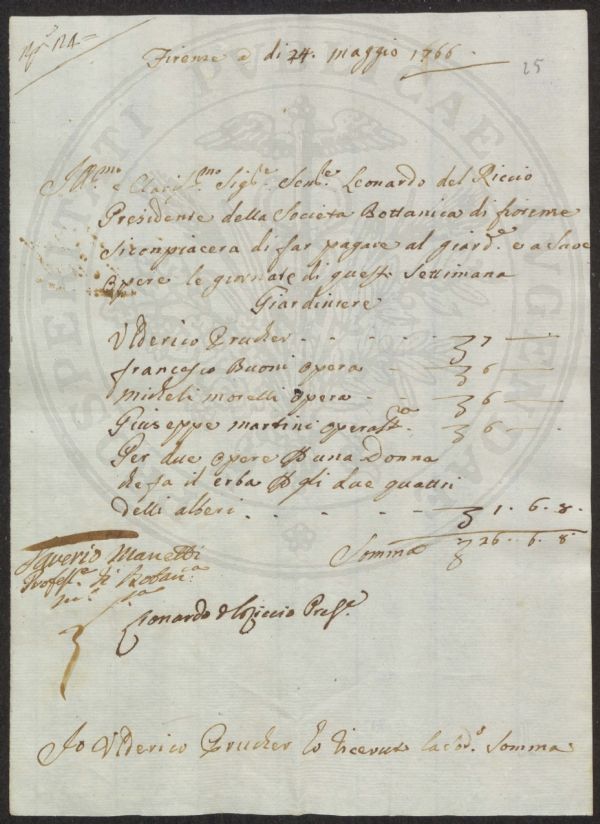 N.º 124=
Firenze a di 24. maggio 1766.
25
Ill.mo e Claris.mo Sig.re Sen.re Leonardo del Riccio
Presidente della Società Bottanica di fiorense
Si conpiacera di far pagare al giard.e e a Sue
opere le giornate di questa Settimana
Giardiniere
Vlderico Prucher - - - - - 7 —
francesco Buoni opera - - 6 —
micheli morelli opera - - 6 —
Giuseppe martini opera - 6 —
Per due opere una donna
che fa il erba gli due quattri
delli alberi - - - - 1. 6. 8.
Somma 26. 6. 8.
Saverio Manetti
Profess.e di Botan.ca
Leonardo del Riccio Pres.e
Io Vlderico Prucher ho Riceuuto la sod.a Somma
SPERITATI PVBLICAE AVGENDAE